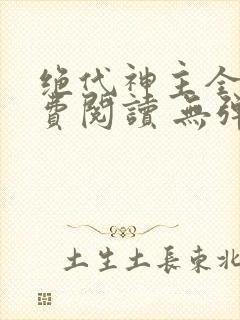 绝代神主全
費閱讀 無彈
土生土長東北